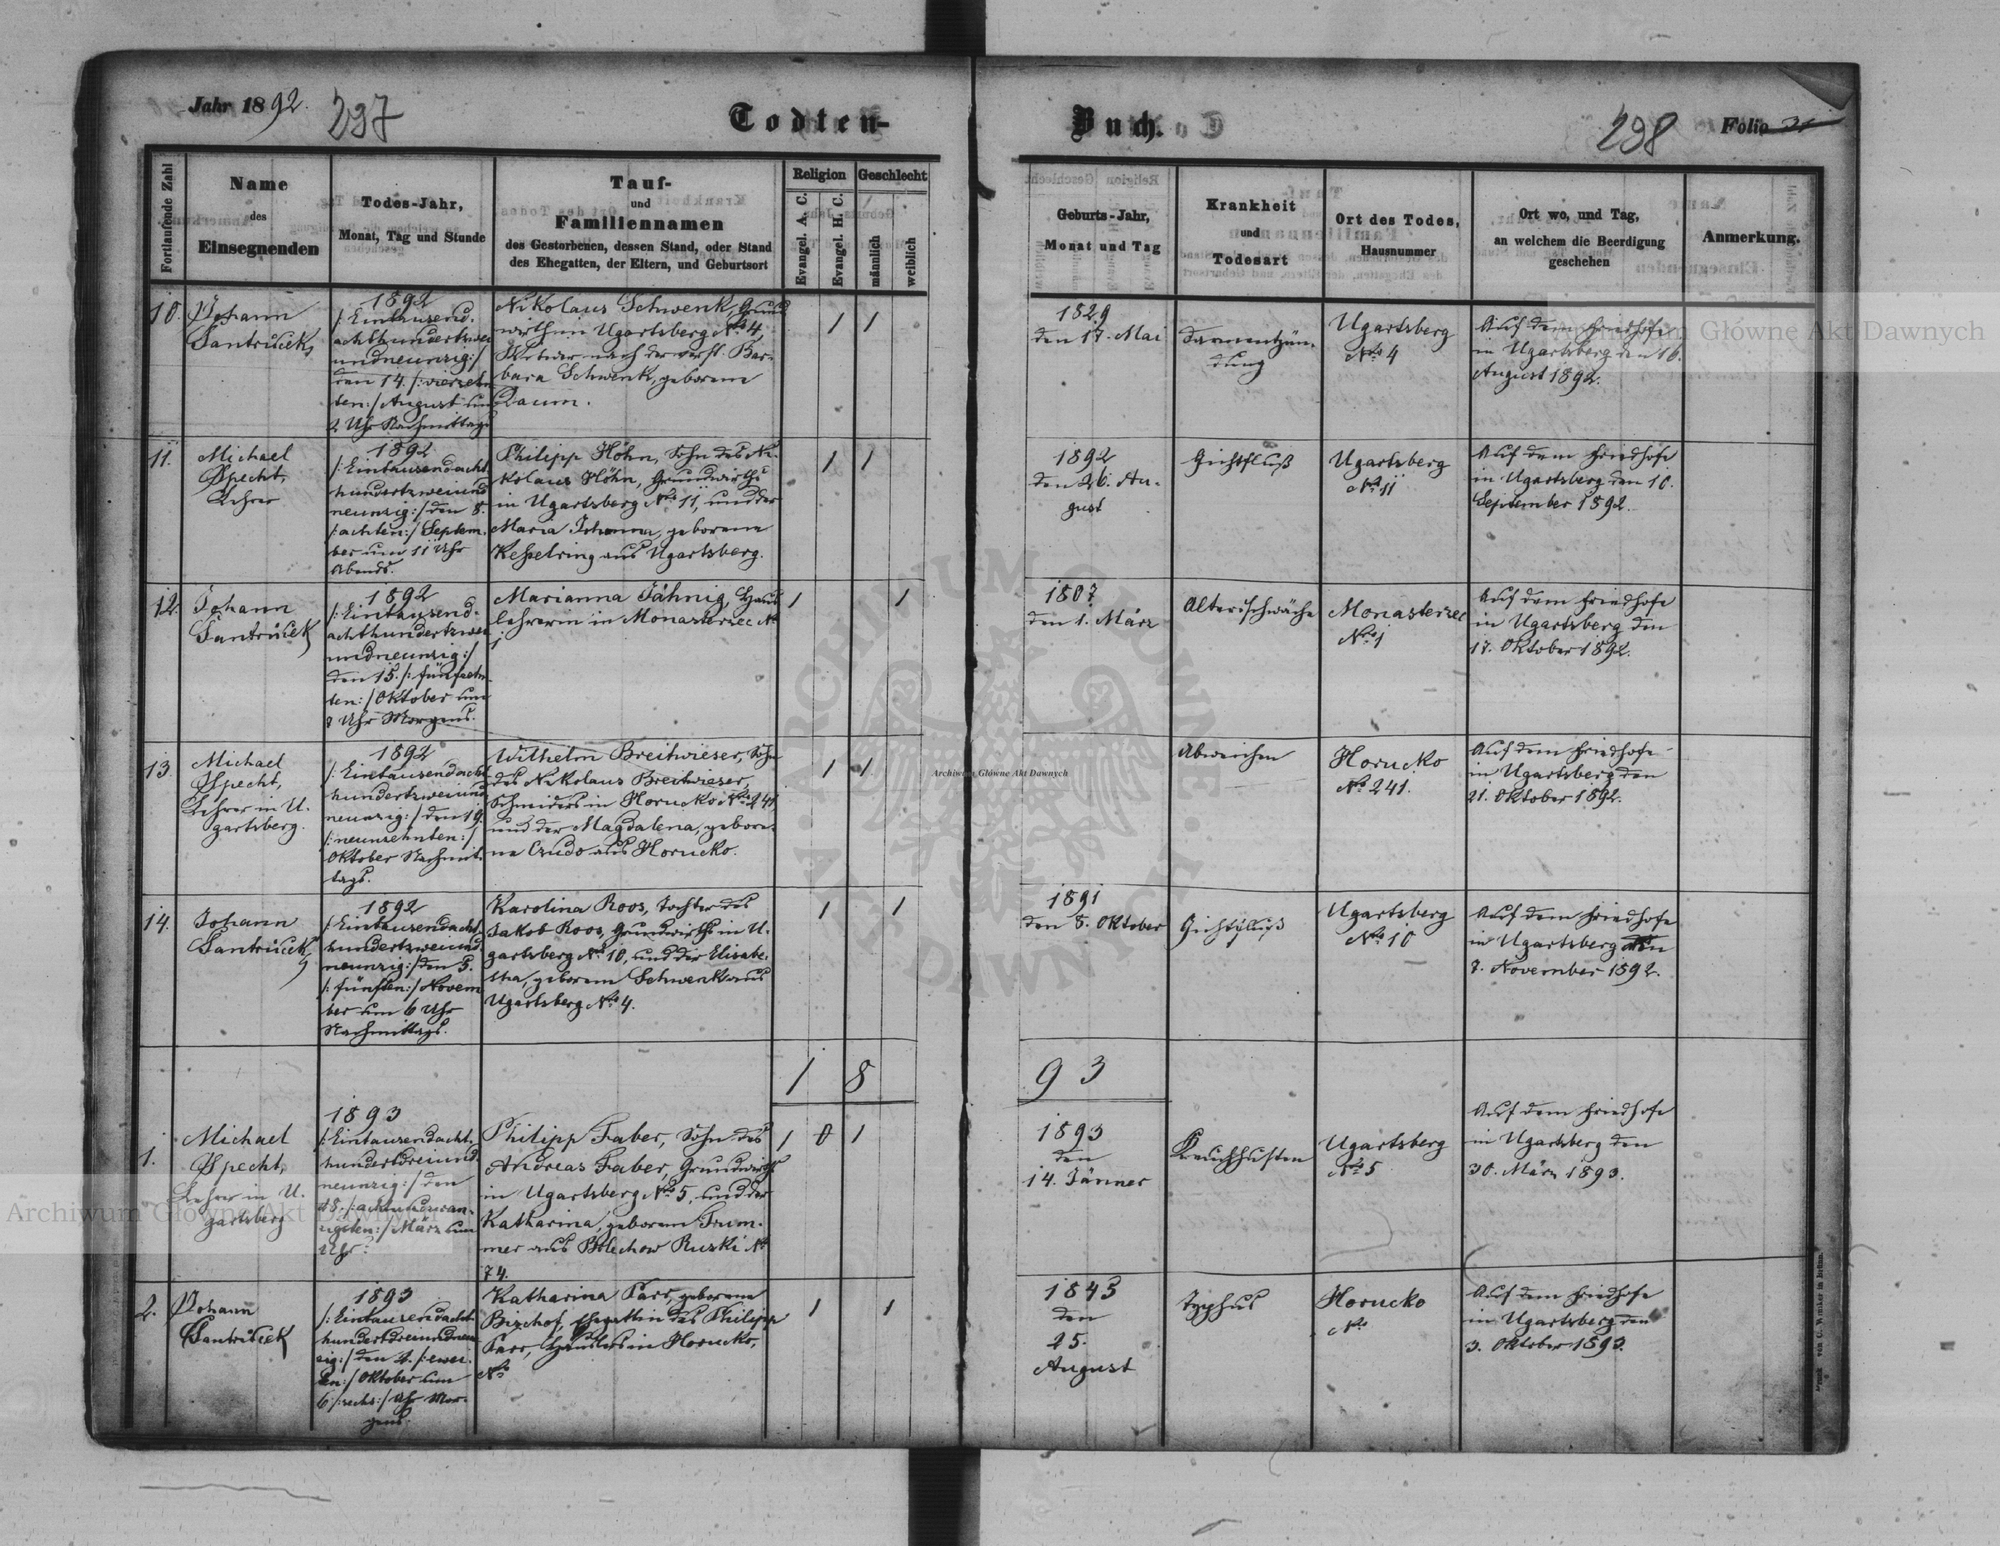 Jahr 1892.
237
Todten-
Buch.
238
Folio 31
Fortlaufende Zahl
Name
des
Einsegnenden
Todes-Jahr,
Monat, Tag und Stunde
Tauf-
und
Familiennamen
des Gestorbenen, dessen Stand, oder Stand
des Ehegatten, der Eltern, und Geburtsort
Religion
Evangel. A. C.
Evangel. H. C.
Geschlecht
männlich
weiblich
Geburts-Jahr,
Monat und Tag
Krankheit
und
Todesart
Ort des Todes,
Hausnummer
Ort wo, und Tag,
an welchem die Beerdigung
geschehen
Anmerkung.
10.
Johann
Santruček
1892
/:Eintausend-
achthundertzwei
undneunzig:/
den 14. /:vierzehn
ten:/ August um
2 Uhr Nachmittags
Nikolaus Schwenk, Grund
wirth in Ugartsberg No 4,
Witwer nach der verst. Bar-
bara Schwenk, geborene
Daum.
1
1
1829
den 17. Mai
Darmentzün-
dung
Ugartsberg
No 4
Auf dem Friedhofe
in Ugartsberg den 16.
August 1892.
11.
Michael
Specht,
Lehrer
1892
/:Eintausendacht
hundertzweiund
neunzig:/ den 8.
/:achten:/ Septem-
ber um 11 Uhr
Abends.
Philipp Höhn, Sohn des Ni-
kolaus Höhn, Grundwirths
in Ugartsberg No 11, und der
Maria Johanna, geborene
Kesselring aus Ugartsberg.
1
1
1892
den 26. Au-
gust
Gichtfluß
Ugartsberg
No 11
Auf dem Friedhofe
in Ugartsberg den 10.
September 1892.
12.
Johann
Santruček
1892
/:Eintausend-
achthundertzwei
undneunzig:/
den 15. /:fünfzehn-
ten:/ Oktober um
8 Uhr Morgens.
Marianna Jähnig, Haus
lehrerin in Monasterzec No
1
1
1
1807
den 1. März
Altersschwäche
Monasterzec
No 1
Auf dem Friedhofe
in Ugartsberg den
17. Oktober 1892.
13.
Michael
Specht,
Lehrer in U-
gartsberg.
1892
/:Eintausendacht
hundertzweiund
neunzig:/ den 19.
/:neunzehnten:/
Oktober Nachmit-
tags.
Wilhelm Breitwieser, Sohn
des Nikolaus Breitwieser,
Schneiders in Horucko No 241
und der Magdalena, gebore-
ne Czudo aus Horucko.
1
1
Abweichen
Horucko
No 241.
Auf dem Friedhofe
in Ugartsberg den
21. Oktober 1892.
14.
Johann
Santruček
1892
/:Eintausendacht-
hundertzweiund
neunzig:/ den 5.
/:fünften:/ Novem
ber um 6 Uhr
Nachmittags.
Karolina Roos, Tochter des
Jakob Roos, Grundwirths in U-
gartsberg No 10, und der Elisabe-
tha, geborene Schwenk aus
Ugartsberg No 4.
1
1
1891
den 8. Oktober
Gichtfluß
Ugartsberg
No 10
Auf dem Friedhofe
in Ugartsberg den
7. November 1892.
1 8
9 3
1.
Michael
Specht,
Lehrer in U-
gartsberg
1893
/:Eintausendacht-
hundertdreiund
neunzig:/ den
28. /:achtundzwan-
zigsten:/ März um
Uhr.
Philipp Faber, Sohn des
Andreas Faber, Grundwirths
in Ugartsberg No 5, und der
Katharina, geborene Trum-
mer aus Bolechow Ruski No
74.
1
0
1
1893
den
14. Jänner
Keuchhusten
Ugartsberg
No 5
Auf dem Friedhofe
in Ugartsberg den
30. März 1893.
2.
Johann
Santruček
1893
/:Eintausendacht-
hundertdreiundneun
zig:/ den 2. /:zwei-
ten:/ Oktober um
6 /:sechs:/ Uhr Mor-
gens.
Katharina Parr, geborene
Bischof, Ehegattin des Philipp
Parr, Häuslers in Horucko,
No
1
1
1843
den
25.
August
Typhus
Horucko
No
Auf dem Friedhofe
in Ugartsberg den
3. Oktober 1893.
Archiwum Główne Akt Dawnych
Archiwum Główne Akt Dawnych
Archiwum Główne Akt Dawnych
ARCHIWUM GŁÓWNE AKT DAWNYCH